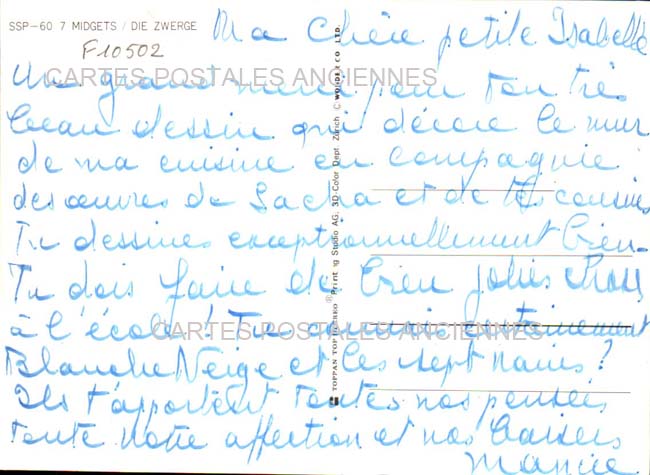 SSP-60 7 MIDGETS / DIE ZWERGE
F10502
Ma Chère petite Isabelle
Un grand merci pour ton très
beau dessin qui décore le mur
de ma cuisine en compagnie
des œuvres de Sacha et de tes cousines
Tu dessines exceptionnellement bien.
Tu dois faire de bien jolies choses
à l'école! Tu connais certainement
Blanche Neige et les sept nains?
Ils t'apportent toutes nos pensées
toute notre affection et nos baisers
CARTES POSTALES ANCIENNES
CARTES POSTALES ANCIENNES
Printing Studio AG, 3D Color Dept Zürich C WONDER CO LTD.